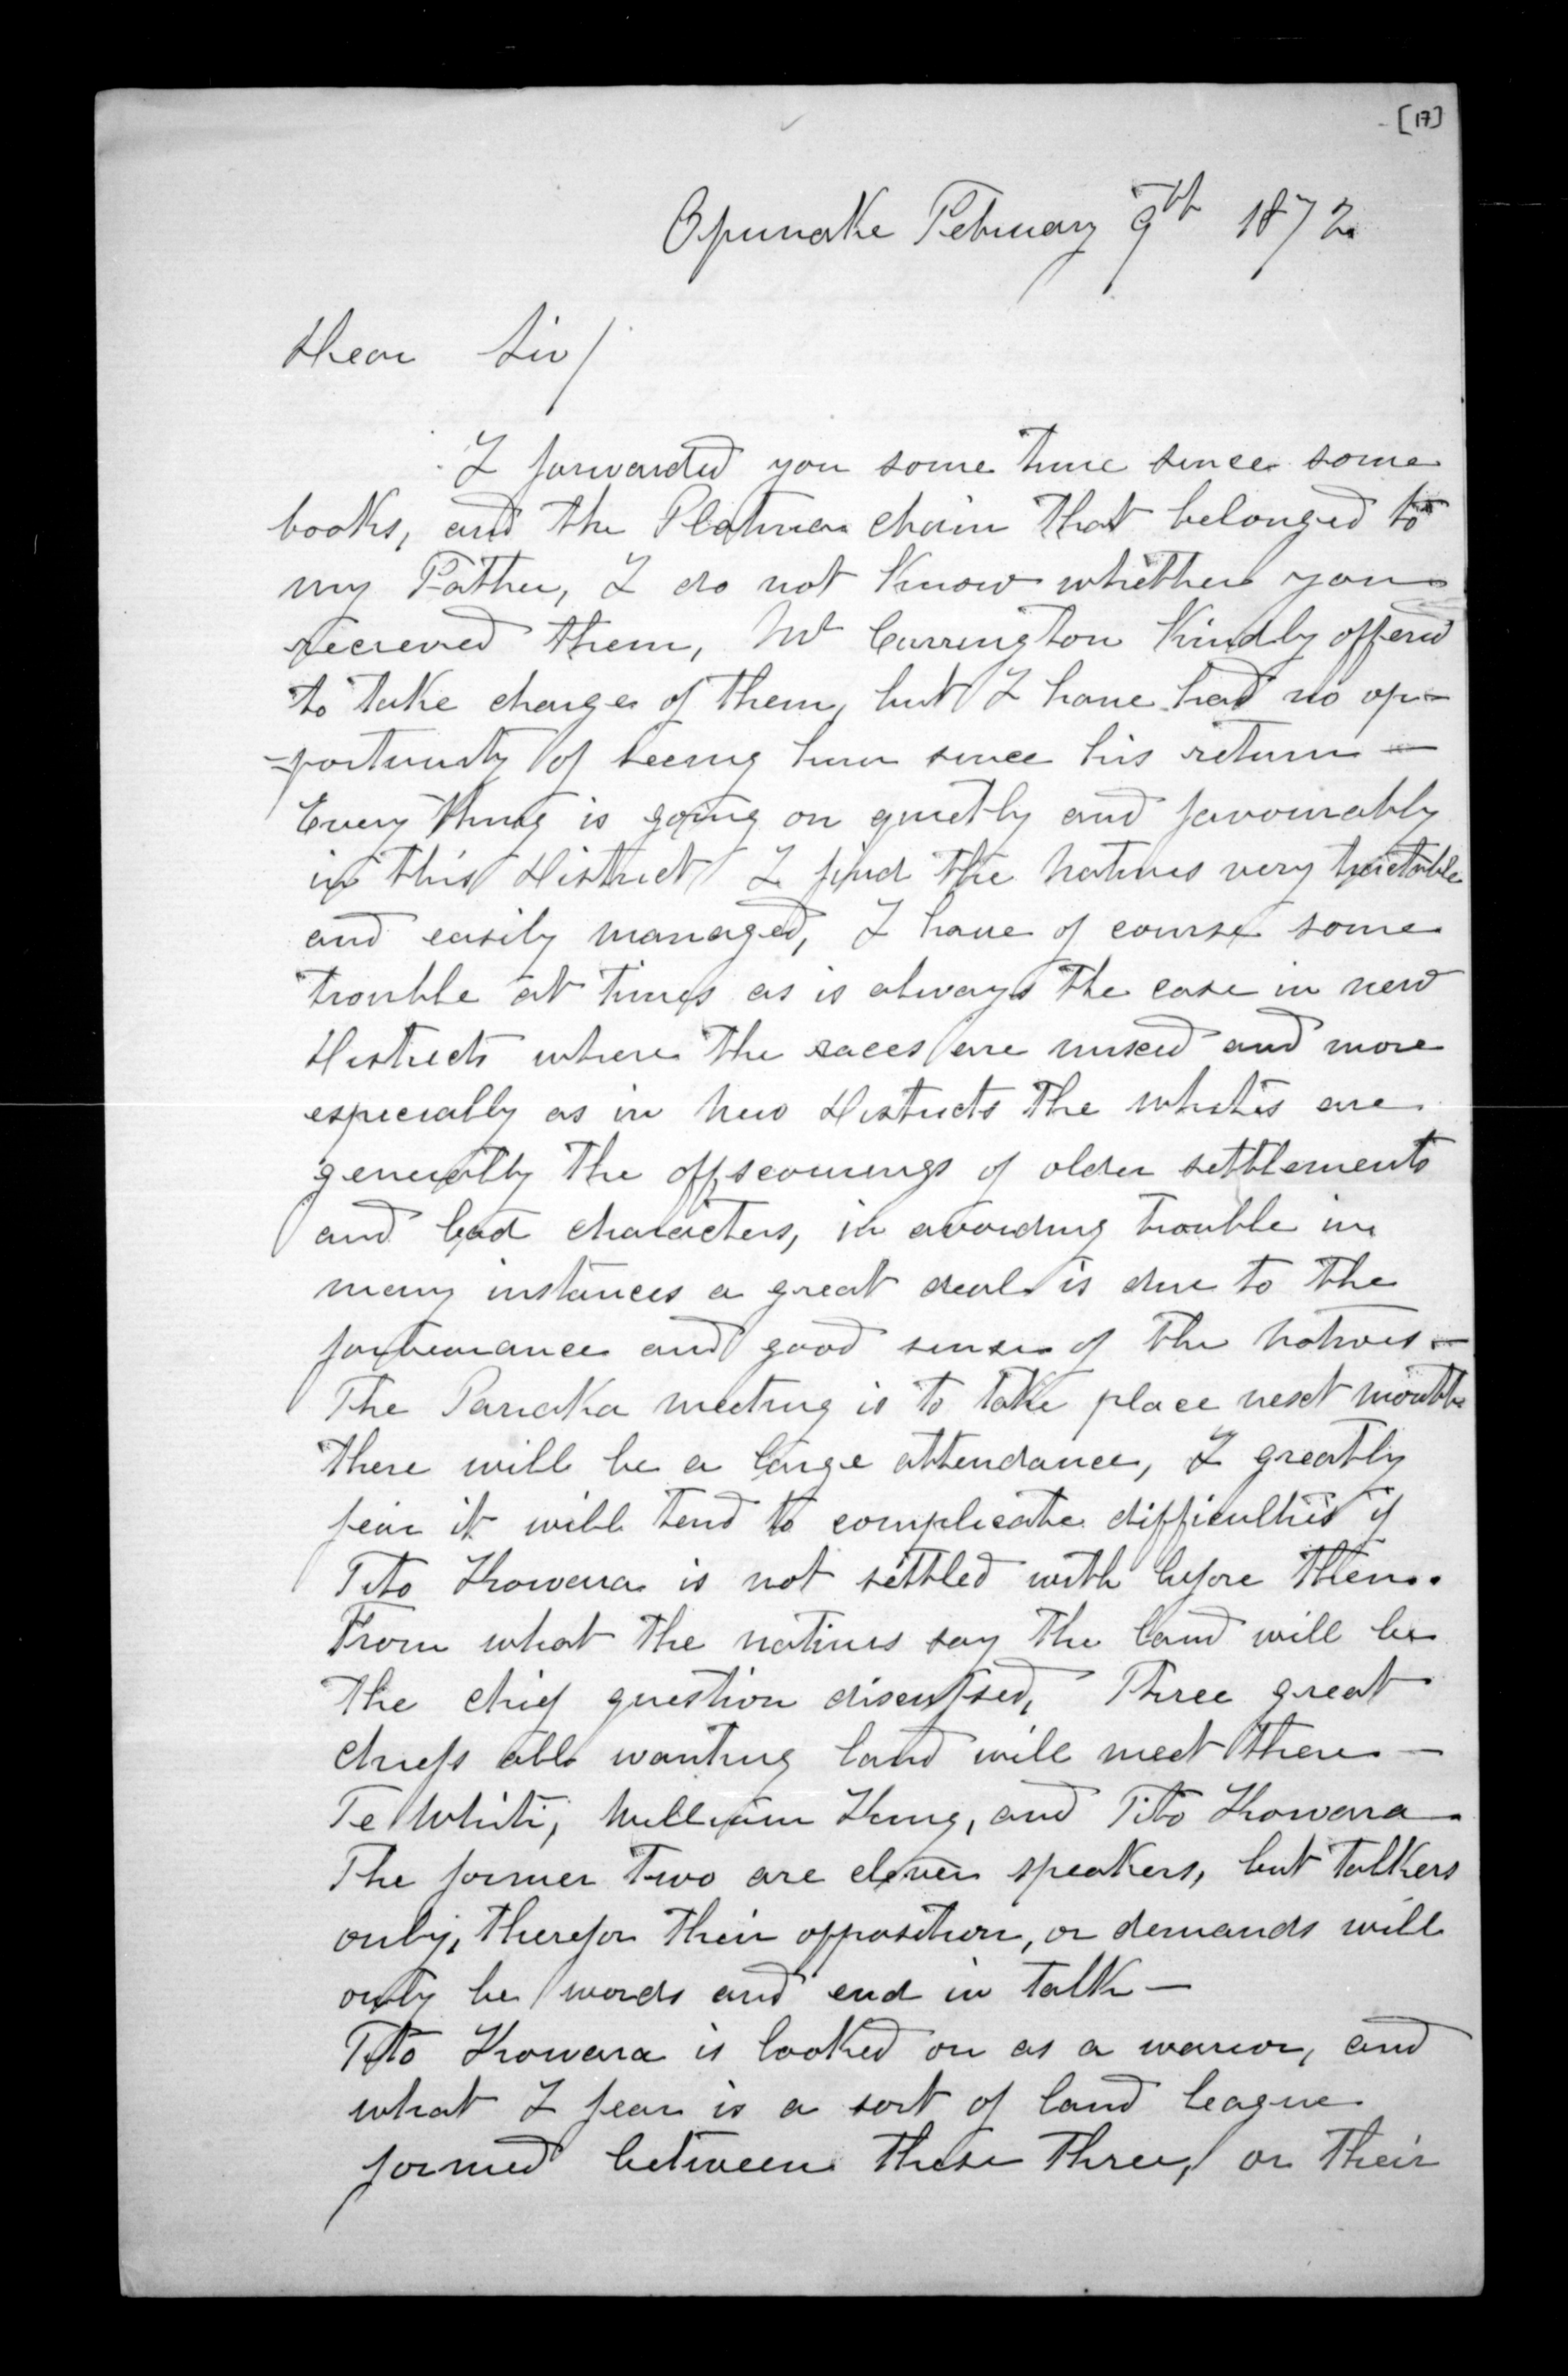 [17]
Opunake February 9th 1872
Dear Sir/
I forwarded you some time since some
books, and the Platina chain that belonged to
my Father, I do not know whether you
recieved them, Mr Carrington kindly offered
to take charge of them, but I have had no op-
=portunity of seeing him since his return —
Every thing is going on quietly and favourably
in this District I find the natives very tractable
and easily managed, I have of course some
trouble at times as is always the case in new
Districts where the races are mixed and more
especially as in new Districts the whites are
generally the offscourings of older settlements
and bad characters, in avoiding trouble in
many instances a great deal is due to the
forbearance and good sense of the natives —
The Pariaka meeting is to take place next month
there will be a large attendance, I greatly
fear it will tend to complicate difficulties if
Tito Kowaru is not settled with before then.
From what the natives say the land will be
the chief question discussed, Three great
chiefs all wanting land will meet there —
Te Whiti, William King, and Tito Kowaru.
The former two are clever speakers, but talkers
only, therefor their opposition, or demands will
only be words and end in talk —
Tito Kowaru is looked on as a warior, and
what I fear is a sort of land league
formed between these three, or their